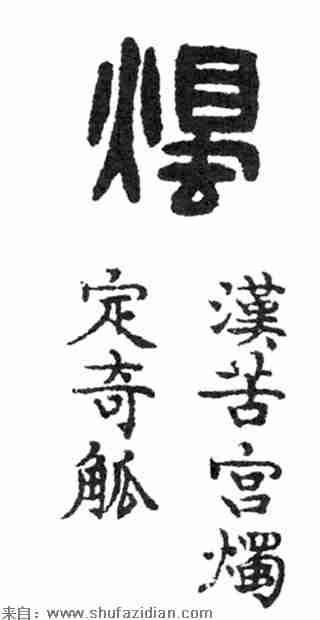 燭
漢苦宮燭
定奇觚
来自：www.shufazidian.com